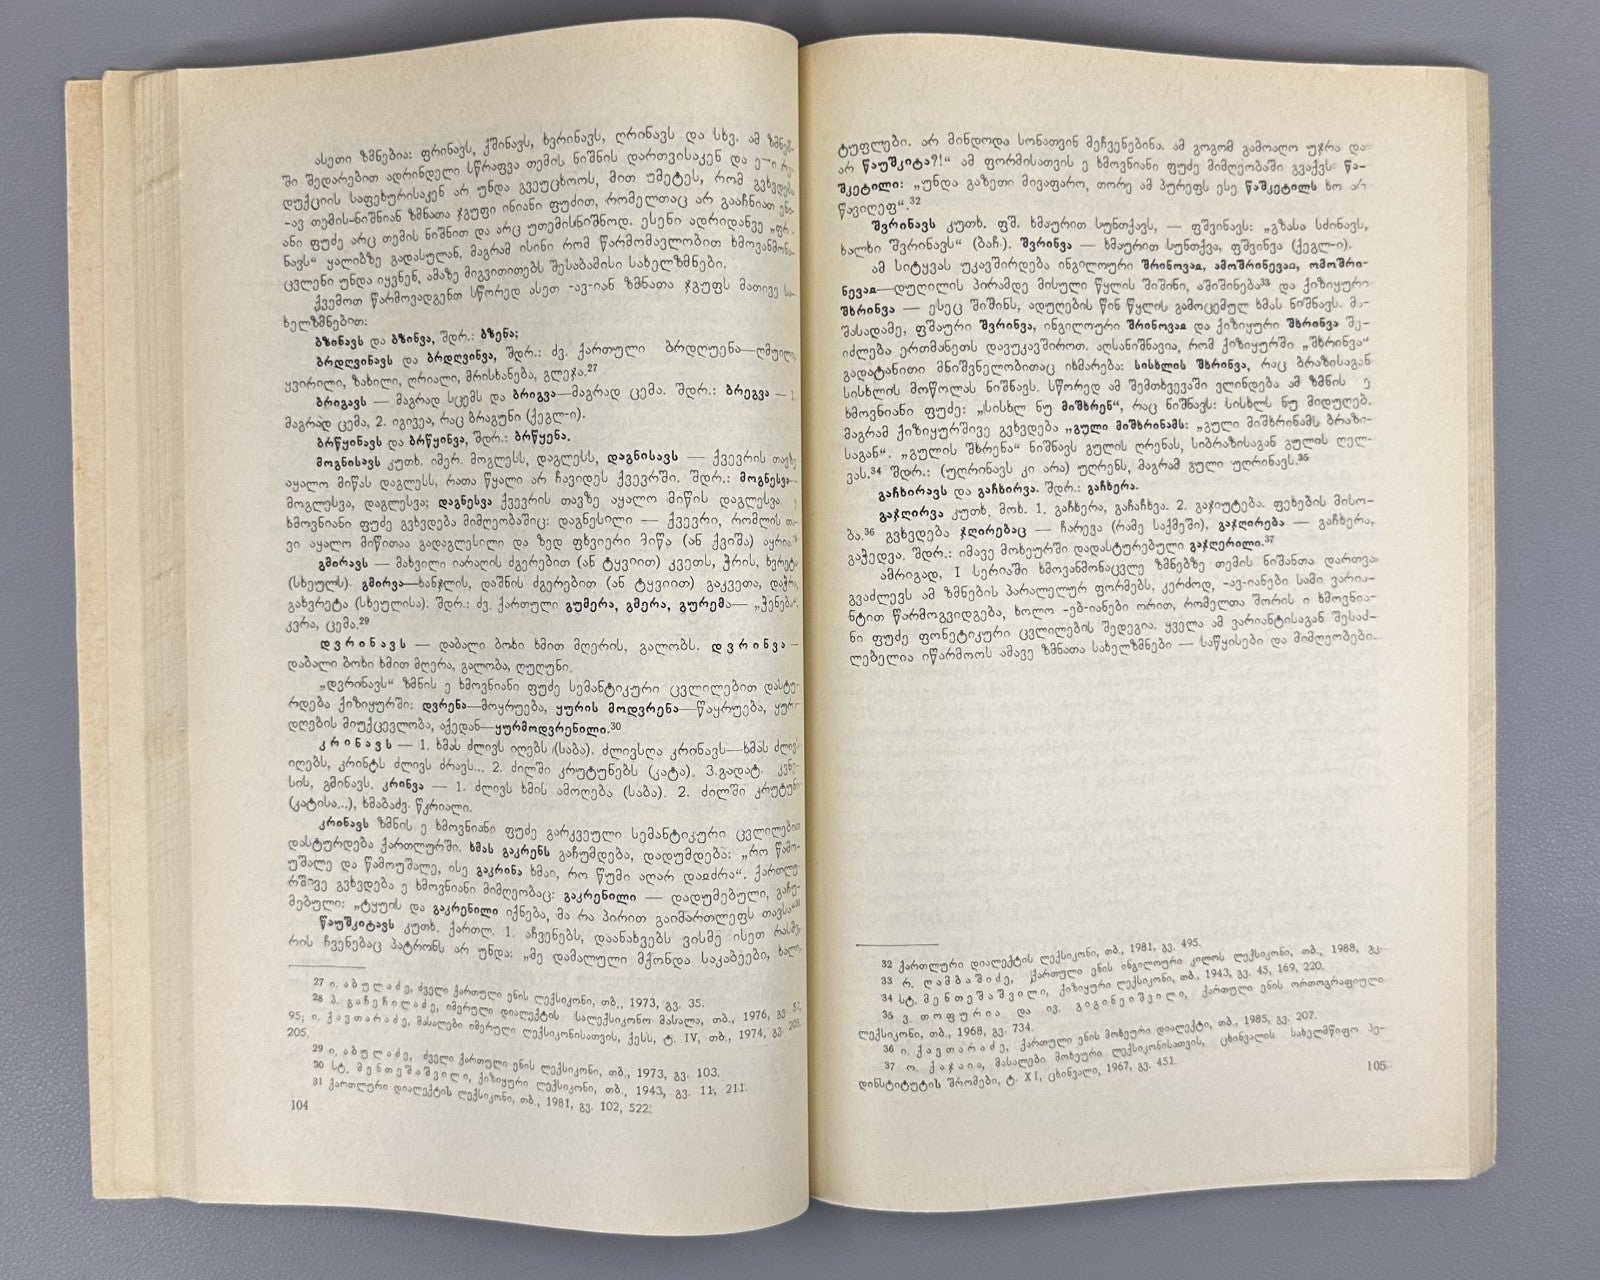 ასეთი ზმნებია: ფრინავს, ქშინავს, ხვრინავს, ღრინავს და სხვ. ამ ზმნებ-
ში შედარებით ადრინდელი სწრაფვა თემის ნიშნის დართვისაკენ და ე—ი რე-
დუქციის საფეხურისაკენ არ უნდა გვეუცხოოს, მით უმეტეს, რომ გვხვდება
-ავ თემის-ნიშნიან ზმნათა ჯგუფი ინიანი ფუძით, რომელთაც არ გააჩნიათ ენი-
ანი ფუძე არც თემის ნიშნით და არც უთემისნიშნოდ. ესენი ადრიდანვე „ფრი-
ნავს“ ყალიბზე გადასულან, მაგრამ ისინი რომ წარმომავლობით ხმოვანმონა-
ცვლენი უნდა იყვნენ, ამაზე მიგვითითებს შესაბამისი სახელზმნები.
ქვემოთ წარმოვადგენთ სწორედ ასეთ -ავ-იან ზმნათა ჯგუფს მათივე სა-
ხელზმნებით:
ბზინავს და ბზინვა, შდრ.: ბზენა;
ბრდღვინავს და ბრდღვინვა, შდრ.: ძვ. ქართული ბრდღუენა—ღმუილი,
ყვირილი, ზახილი, ღრიალი, მრისხანება, გლეჯა.27
ბრიგავს — მაგრად სცემს და ბრიგვა—მაგრად ცემა. შდრ.: ბრეგვა — 1.
მაგრად ცემა, 2. იგივეა, რაც ბრაგუნი (ქეგლ-ი).
ბრწყინავს და ბრწყინვა, შდრ.: ბრწყენა.
მოგნისავს კუთხ. იმერ. მოგლესს, დაგლესს, დაგნისავს — ქვევრის თავზე
აყალო მიწას დაგლესს, რათა წყალი არ ჩავიდეს ქვევრში. შდრ.: მოგნესვა—
მოგლესვა, დაგლესვა; დაგნესვა ქვევრის თავზე აყალო მიწის დაგლესვა. ე
ხმოვნიანი ფუძე გვხვდება მიმღეობაშიც: დაგნესილი — ქვევრი, რომლის თა-
ვი აყალო მიწითაა გადაგლესილი და ზედ ფხვიერი მიწა (ან ქვიშა) აყრია.28
გმირავს — მახვილი იარაღის ძგერებით (ან ტყვიით) კვეთს, ჭრის, ხვრეტს
(სხეულს). გმირვა—ხანჯლის, დაშნის ძგერებით (ან ტყვიით) გაკვეთა, დაჭრა,
გახვრეტა (სხეულისა). შდრ.: ძვ. ქართული გუმერა, გმერა, გურემა— „ჴენება“,
კვრა, ცემა.29
დვრინავს — დაბალი ბოხი ხმით მღერის, გალობს. დვრინვა—
დაბალი ბოხი ხმით მღერა, გალობა, ღუღუნი.
„დვრინავს“ ზმნის ე ხმოვნიანი ფუძე სემანტიკური ცვლილებით დასტუ-
რდება ქიზიყურში: დვრენა—მოყრუება, ყურის მოდვრენა—წაყრუება, ყურ-
დღების მიუქცევლობა, აქედან—ყურმოდვრენილი.30
კრინავს — 1. ხმას ძლივს იღებს (საბა). ძლივსღა კრინავს—ხმას ძლივს
იღებს, კრინტს ძლივს ძრავს... 2. ძილში კრუტუნებს (კატა). 3.გადატ. კვნე-
სის, გმინავს. კრინვა — 1. ძლივს ხმის ამოღება (საბა). 2. ძილში კრუტუნი
(კატისა...), ხმაბაძვ. წკრიალი.
კრინავს ზმნის ე ხმოვნიანი ფუძე გარკვეული სემანტიკური ცვლილებით
დასტურდება ქართლურში. ხმას გაკრენს გაჩუმდება, დადუმდება: „რო წამო-
უშალე და წამოუშალე, ისე გაკრინა ხმაი, რო წუმი აღარ დაჲძრა“. ქართლუ-
რშივე გვხვდება ე ხმოვნიანი მიმღეობაც: გაკრენილი — დადუმებული, გაჩუ-
მებული: „ტყუის და გაკრენილი იქნება, მა რა პირით გაიმართლეფს თავსა“31
წაუშკიტავს კუთხ. ქართლ. 1. აჩვენებს, დაანახვებს ვისმე ისეთ რასმე,
რის ჩვენებაც პატრონს არ უნდა: „მე დამალული მქონდა საკაბეები, ხალი-
27 ი. აბულაძე, ძველი ქართული ენის ლექსიკონი, თბ., 1973, გვ. 35.
28 პ. გაჩეჩილაძე, იმერული დიალექტის სალექსიკონო მასალა, თბ., 1976, გვ. 57,
95; ი. ქავთარაძე, მასალები იმერული ლექსიკონისათვის, ქესს, ტ. IV, თბ., 1974, გვ. 205.
205.
29 ი. აბულაძე, ძველი ქართული ენის ლექსიკონი, თბ., 1973, გვ. 103.
30 სტ. მენთეშაშვილი, ქიზიყური ლექსიკონი, თბ., 1943, გვ. 11, 211.
31 ქართლური დიალექტის ლექსიკონი, თბ., 1981, გვ. 102, 522.
104
ტუფლები. არ მინდოდა სონათვინ მეჩვენებინა. ამ გოგომ გამოაღო უჯრა და
არ წაუშკიტა?!“ ამ ფორმისათვის ე ხმოვნიანი ფუძე მიმღეობაში გვაქვს: წა-
შკეტილი: „უნდა გაზეთი მივაფარო, თორე ამ პურეფს ესე წაშკეტილს ხო არ
წავიღეფ“.32
შვრინავს კუთხ. ფშ. ხმაურით სუნთქავს, — ფშვინავს: „გზასა სძინავს,
ხალხი შვრინავს“ (ბაჩ.). შვრინვა — ხმაურით სუნთქვა, ფშვინვა (ქეგლ-ი).
ამ სიტყვას უკავშირდება ინგილოური შრინოვაჲ, ამოშრინევაჲ, ომოშრი-
ნევაჲ—დუღილის პირამდე მისული წყლის შიშინი, აშიშინება33 და ქიზიყური
შხრინვა — ესეც შიშინს, ადუღების წინ წყლის გამოცემულ ხმას ნიშნავს. მა-
შასადამე, ფშაური შვრინვა, ინგილოური შრინოვაჲ და ქიზიყური შხრინვა შე-
იძლება ერთმანეთს დავუკავშიროთ. აღსანიშნავია, რომ ქიზიყურში „შხრინვა“
გადატანითი მნიშვნელობითაც იხმარება: სისხლის შხრინვა, რაც ბრაზისაგან
სისხლის მოწოლას ნიშნავს. სწორედ ამ შემთხვევაში ვლინდება ამ ზმნის ე
ხმოვნიანი ფუძე: „სისხლ ნუ მიშხრენ“, რაც ნიშნავს: სისხლს ნუ მიდუღებ.
მაგრამ ქიზიყურშივე გვხვდება „გული მიშხრინამს: „გული მიშხრინამს ბრაზი-
საგან“. „გულის შხრენა“ ნიშნავს გულის ღრენას, სიბრაზისაგან გულის ღელ-
ვას.34 შდრ.: (უღრინავს კი არა) უღრენს, მაგრამ გული უღრინავს.35
გაჩხირავს და გაჩხირვა. შდრ.: გაჩხერა.
გაჯღირვა კუთხ. მოხ. 1. გაჩხერა, გაჩაჩხვა. 2. გაჯიუტება. ფეხების მისო-
ბა.36 გვხვდება ჯღირებაც — ჩარევა (რამე საქმეში), გაჯღირება — გაჩხერა,
გაჭედვა. შდრ.: იმავე მოხეურში დადასტურებული გაჯღერილი.37
ამრიგად, I სერიაში ხმოვანმონაცვლე ზმნებზე თემის ნიშანთა დართვა
გვაძლევს ამ ზმნების პარალელურ ფორმებს, კერძოდ, -ავ-იანები სამი ვარია-
ნტით წარმოგვიდგება, ხოლო -ებ-იანები ორით, რომელთა შორის ი ხმოვნია-
ნი ფუძე ფონეტიკური ცვლილების შედეგია. ყველა ამ ვარიანტისაგან შესაძ-
ლებელია იწარმოოს ამავე ზმნათა სახელზმნები — საწყისები და მიმღეობები.
32 ქართლური დიალექტის ლექსიკონი, თბ., 1981, გვ. 495.
33 რ. ღამბაშიძე, ქართული ენის ინგილოური კილოს ლექსიკონი, თბ., 1988, გვ.
34 სტ. მენთეშაშვილი, ქიზიყური ლექსიკონი, თბ., 1943, გვ. 45, 169, 220.
35 ვ. თოფურია და ივ. გიგინეიშვილი, ქართული ენის ორთოგრაფიული
ლექსიკონი, თბ., 1968, გვ. 734.
36 ი. ქავთარაძე, ქართული ენის მოხეური დიალექტი, თბ., 1985, გვ. 207.
37 ო. ქაჯაია, მასალები მოხეური ლექსიკონისათვის, ცხინვალის სახელმწიფო პე-
დინსტიტუტის შრომები, ტ. XI, ცხინვალი, 1967, გვ. 451.
105